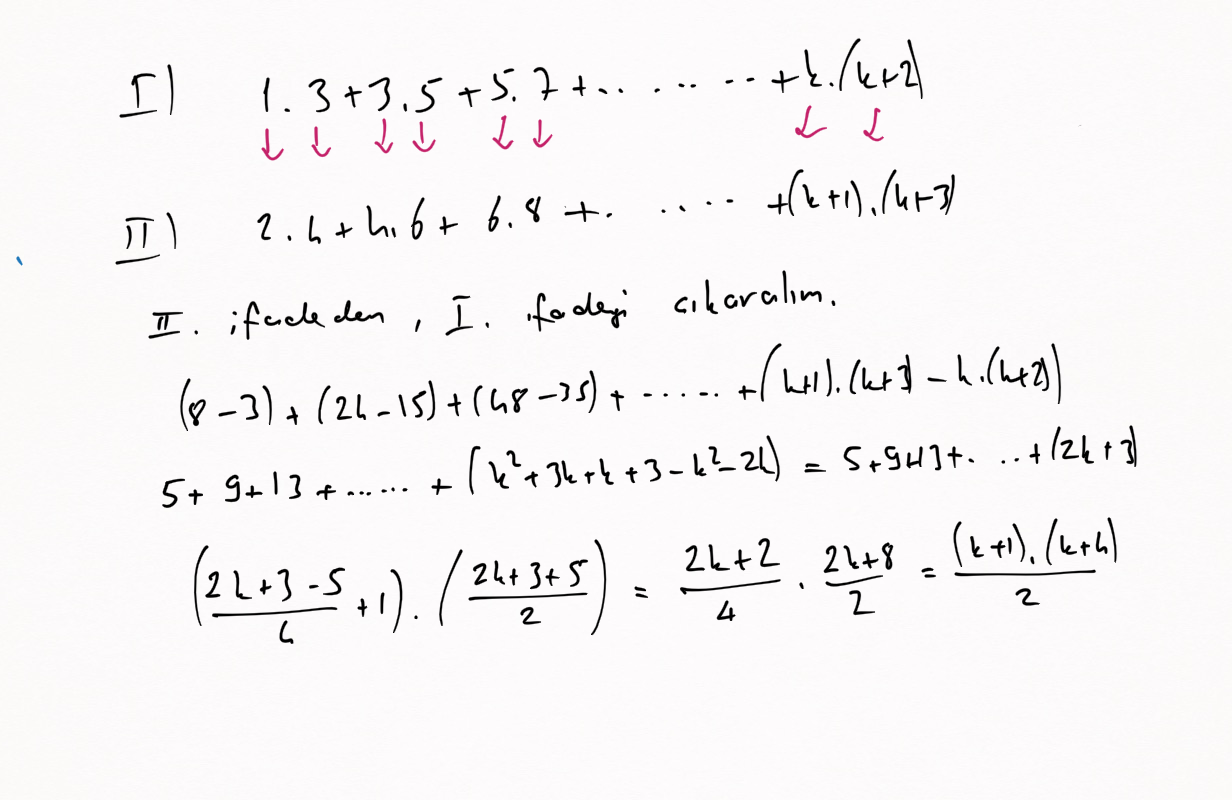 I) 1.3+3.5+5.7+.. ... ..+k.(k+2)
II) 2.4+4.6+6.8+. .... +(k+1).(k+3)
II. ifadeden, I. ifadeyi çıkaralım.
(8-3)+(24-15)+(48-35)+......+((k+1).(k+3)-k.(k+2))
5+9+13+......+(k²+3k+k+3-k²-2k)=5+9+13+. ..+(2k+3)
((2k+3-5)/4+1).((2k+3+5)/2)=(2k+2)/4.(2k+8)/2=((k+1).(k+4))/2